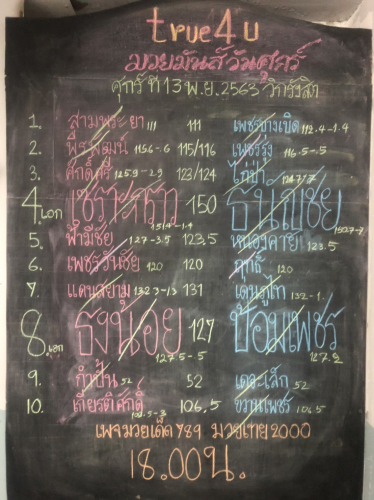 true4u
มวยมันส์วันศุกร์
ศุกร์ ที่ 13 พ.ย. 2563 วิกรังสิต
1. สามพระยา 111 111 เพชรบางเบิด 112.4-1.4
2. พีรพัฒน์ 115.6-.6 115/116 เพชรรุ่ง 116.5-.5
3. ศักดิ์ศรี 125.9-2.9 123/124 ไก่ป่า
4.เอก เพชรา 151.4-1.4 150 ธนัญชัย
5. ฟ้ามีชัย 127-3.5 123,5 หนองคาย 123.5
6. เพชรวันชัย 120 120 ฤทธิ์ 120
7. แดนสยาม 132.3-1.3 131 เด่นภูไท 132-1
8.เอก ธงน้อย 127.5-.5 127 ป้อมเพชร 127.2
9. กำปั้น 52 52 เดอะเล็ก 52
10. เกียรติศักดิ์ 109.5-3 106,5 ขวานเพชร 106.5
เพจมวยเด็ด 789 มวยไทย 2000
18.00น.